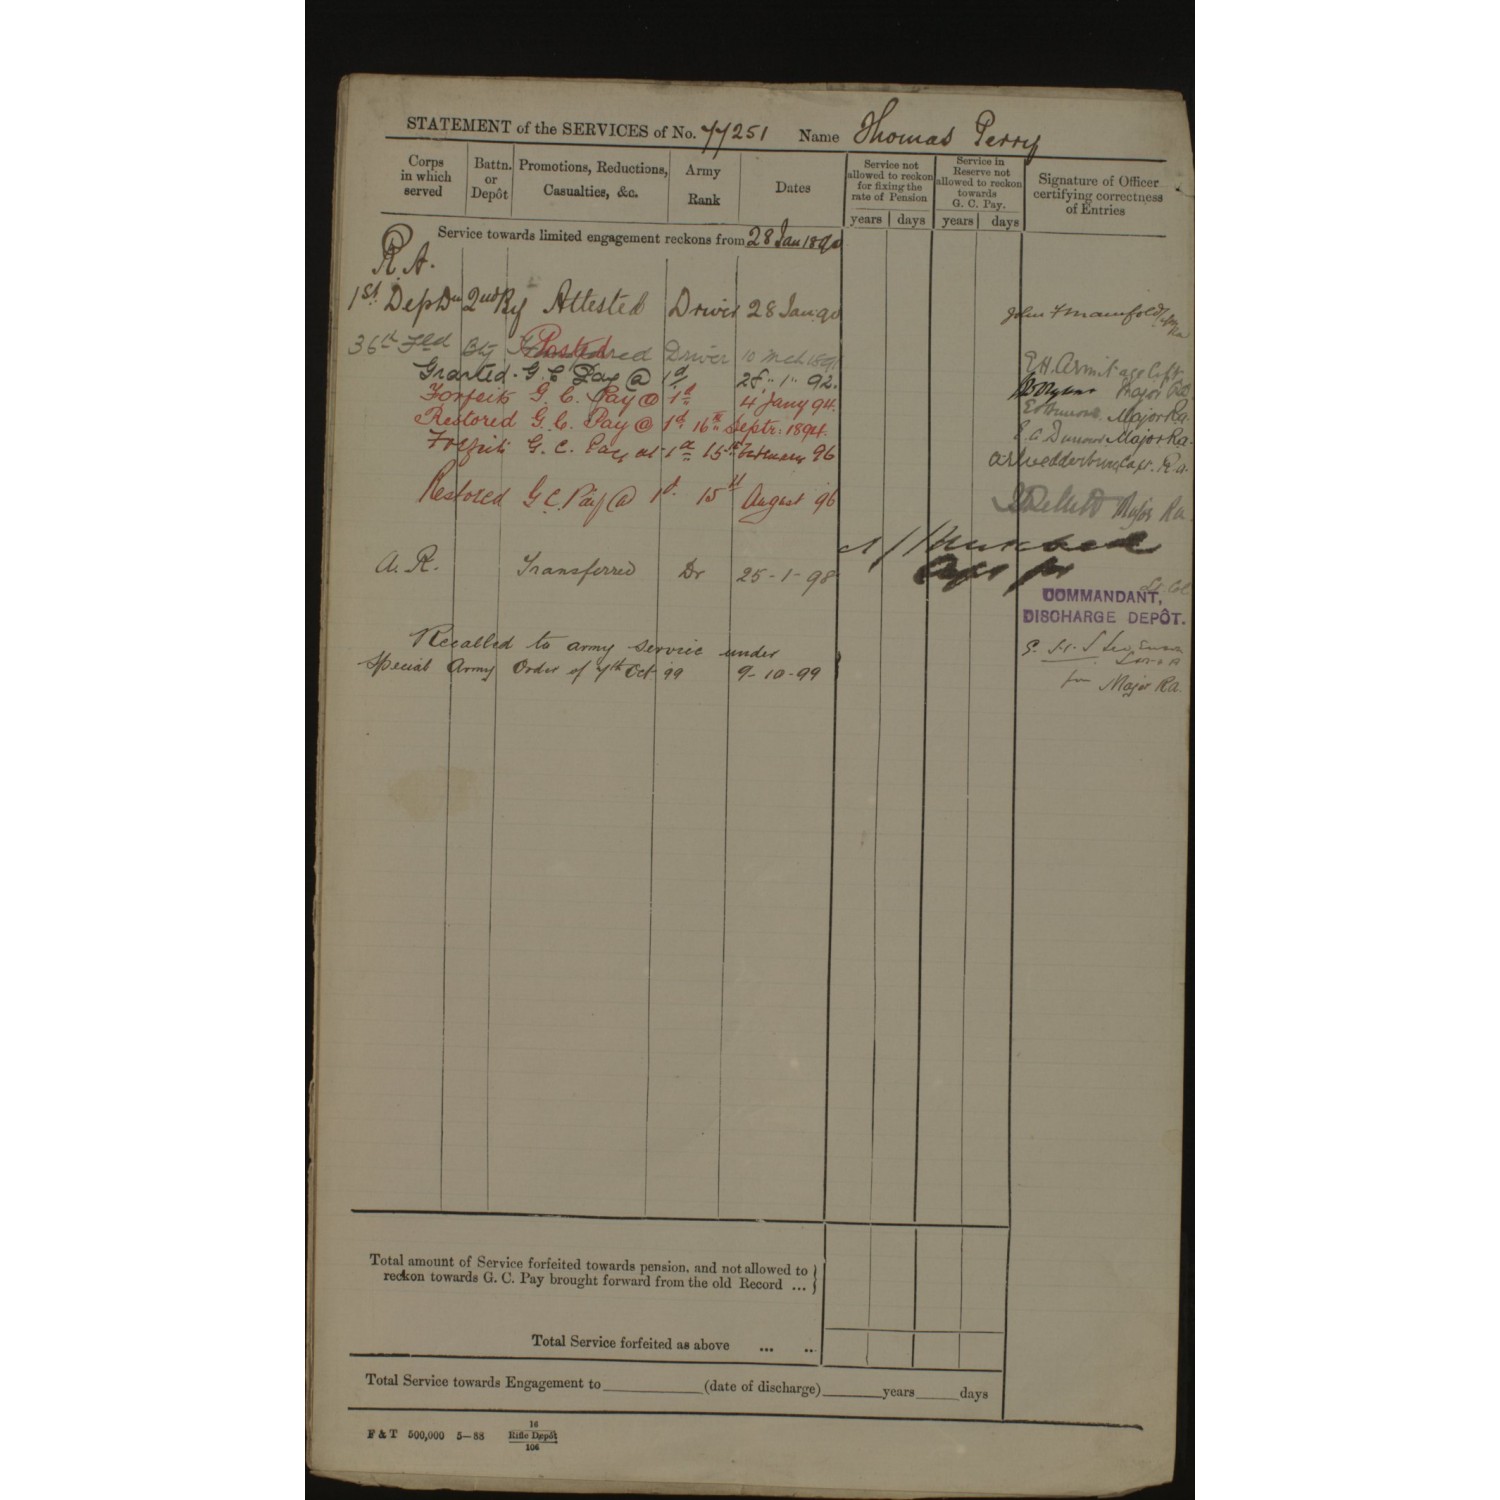 STATEMENT of the SERVICES of No. 77251 Name Thomas Perry
Corps in which served
Battn. or Depôt
Promotions, Reductions, Casualties, &c.
Army Rank
Dates
Service not allowed to reckon for fixing the rate of Pension
years days
Service in Reserve not allowed to reckon towards G. C. Pay.
years days
Signature of Officer certifying correctness of Entries
Service towards limited engagement reckons from 28 Jan 1890
R.A.
1st Dep Dn 2nd By Attested Driver 28 Jan 90
36th Fld Bty Posted Driver 10 Mch 1890
Granted G C Pay @ 1d 28 " 1 " 92. Major
Forfeits G. C. Pay @ 1d 4 Jany 94. Major Ra.
Restored G. C. Pay @ 1d 16th Septr. 1894. Major Ra.
Forfeits G. C. Pay at 1d 15th February 96 Capt. R.a.
Restored G.C. Pay @ 1d. 15th August 96 Major Ra
A. R. Transferred Dr 25-1-98
Lt. Col
COMMANDANT,
DISCHARGE DEPÔT.
Recalled to army service under
Special Army Order of 7th Oct 99 9-10-99
for Major Ra.
Total amount of Service forfeited towards pension, and not allowed to
reckon towards G. C. Pay brought forward from the old Record ...
Total Service forfeited as above ... ...
Total Service towards Engagement to (date of discharge) years days
F & T 500,000 5—88 16 Rifle Depôt 106